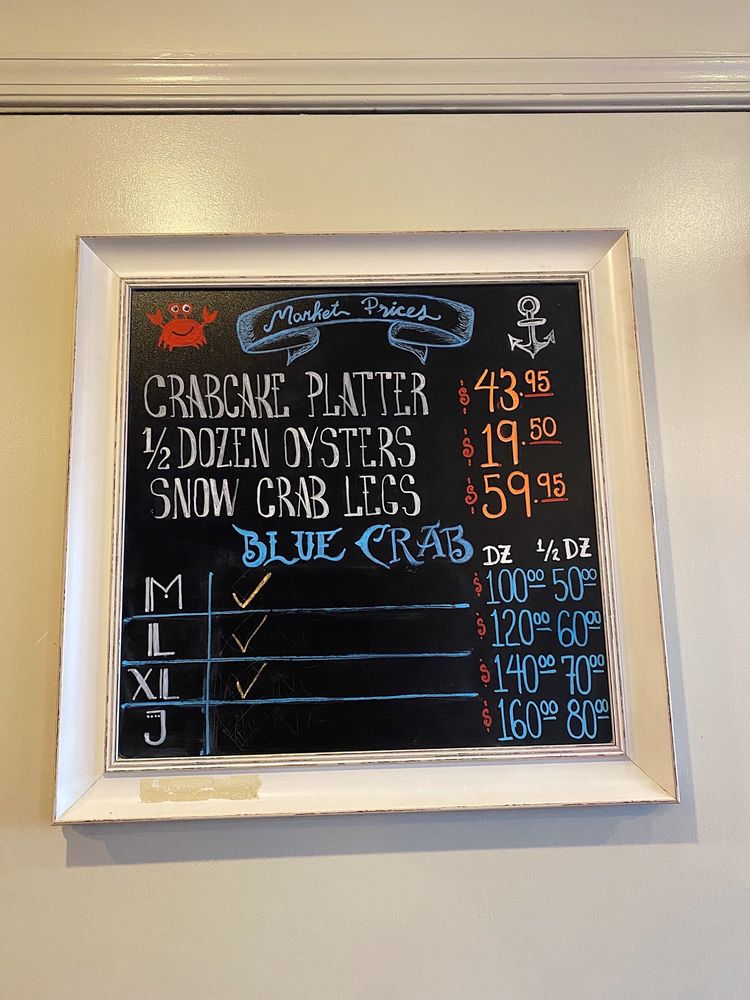 Market Prices
CRABCAKE PLATTER $43.95
1/2 DOZEN OYSTERS $19.50
SNOW CRAB LEGS $59.95
BLUE CRAB DZ 1/2 DZ
M ✓ $100.00 50.00
L ✓ $120.00 60.00
XL ✓ $140.00 70.00
J $160.00 80.00